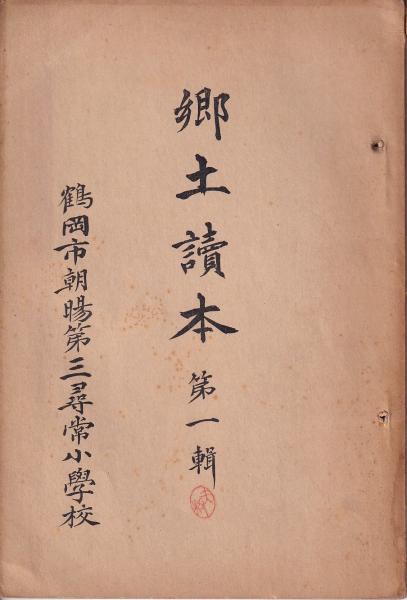 鄕土讀本 第一輯
鶴岡市朝暘第三尋常小學校